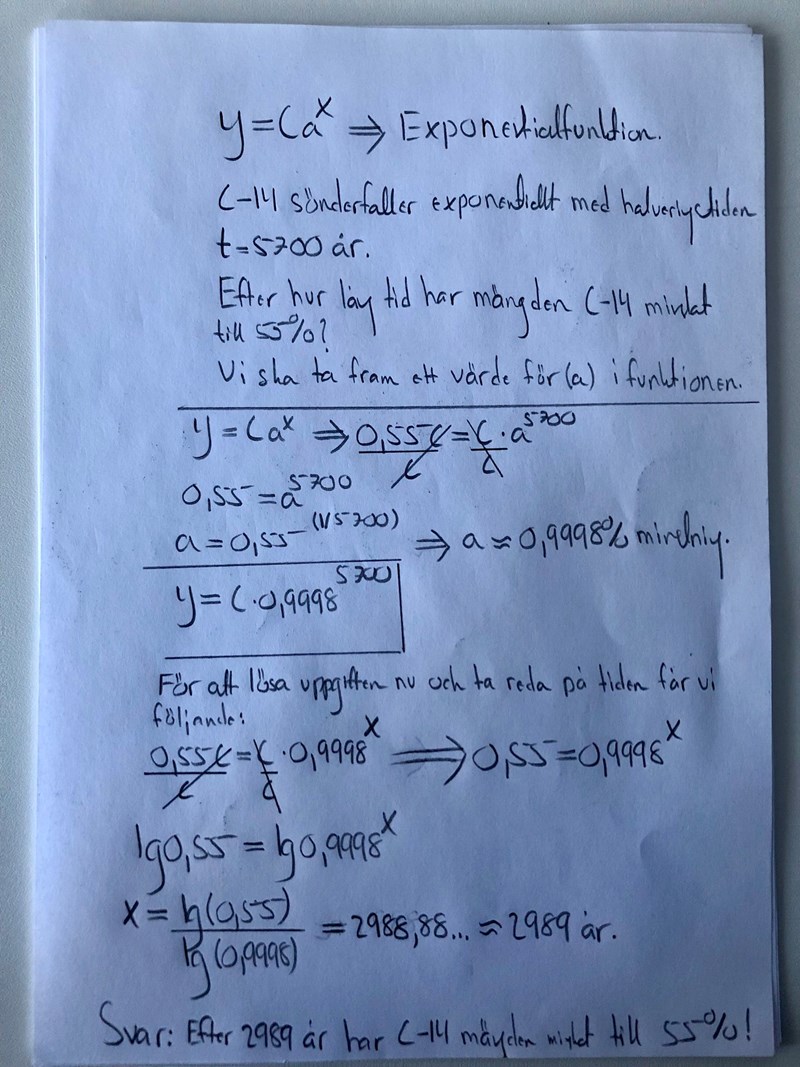 y=Ca^x ⇒ Exponentialfunktion.
C-14 sönderfaller exponentiellt med halveringstiden
t=5700 år.
Efter hur lång tid har mängden C-14 minskat
till 55%?
Vi ska ta fram ett värde för (a) i funktionen.
y=Ca^x ⇒ 0,55C/C=C/C·a^5700
0,55=a^5700
a=0,55^(1/5700) ⇒ a≈0,9998% minskning.
y=C·0,9998^5700
För att lösa uppgiften nu och ta reda på tiden får vi
följande:
0,55C/C=C/C·0,9998^x ⇒ 0,55=0,9998^x
lg0,55=lg0,9998^x
x=lg(0,55)/lg(0,9998)=2988,88...≈2989 år.
Svar: Efter 2989 år har C-14 mängden minskat till 55%!